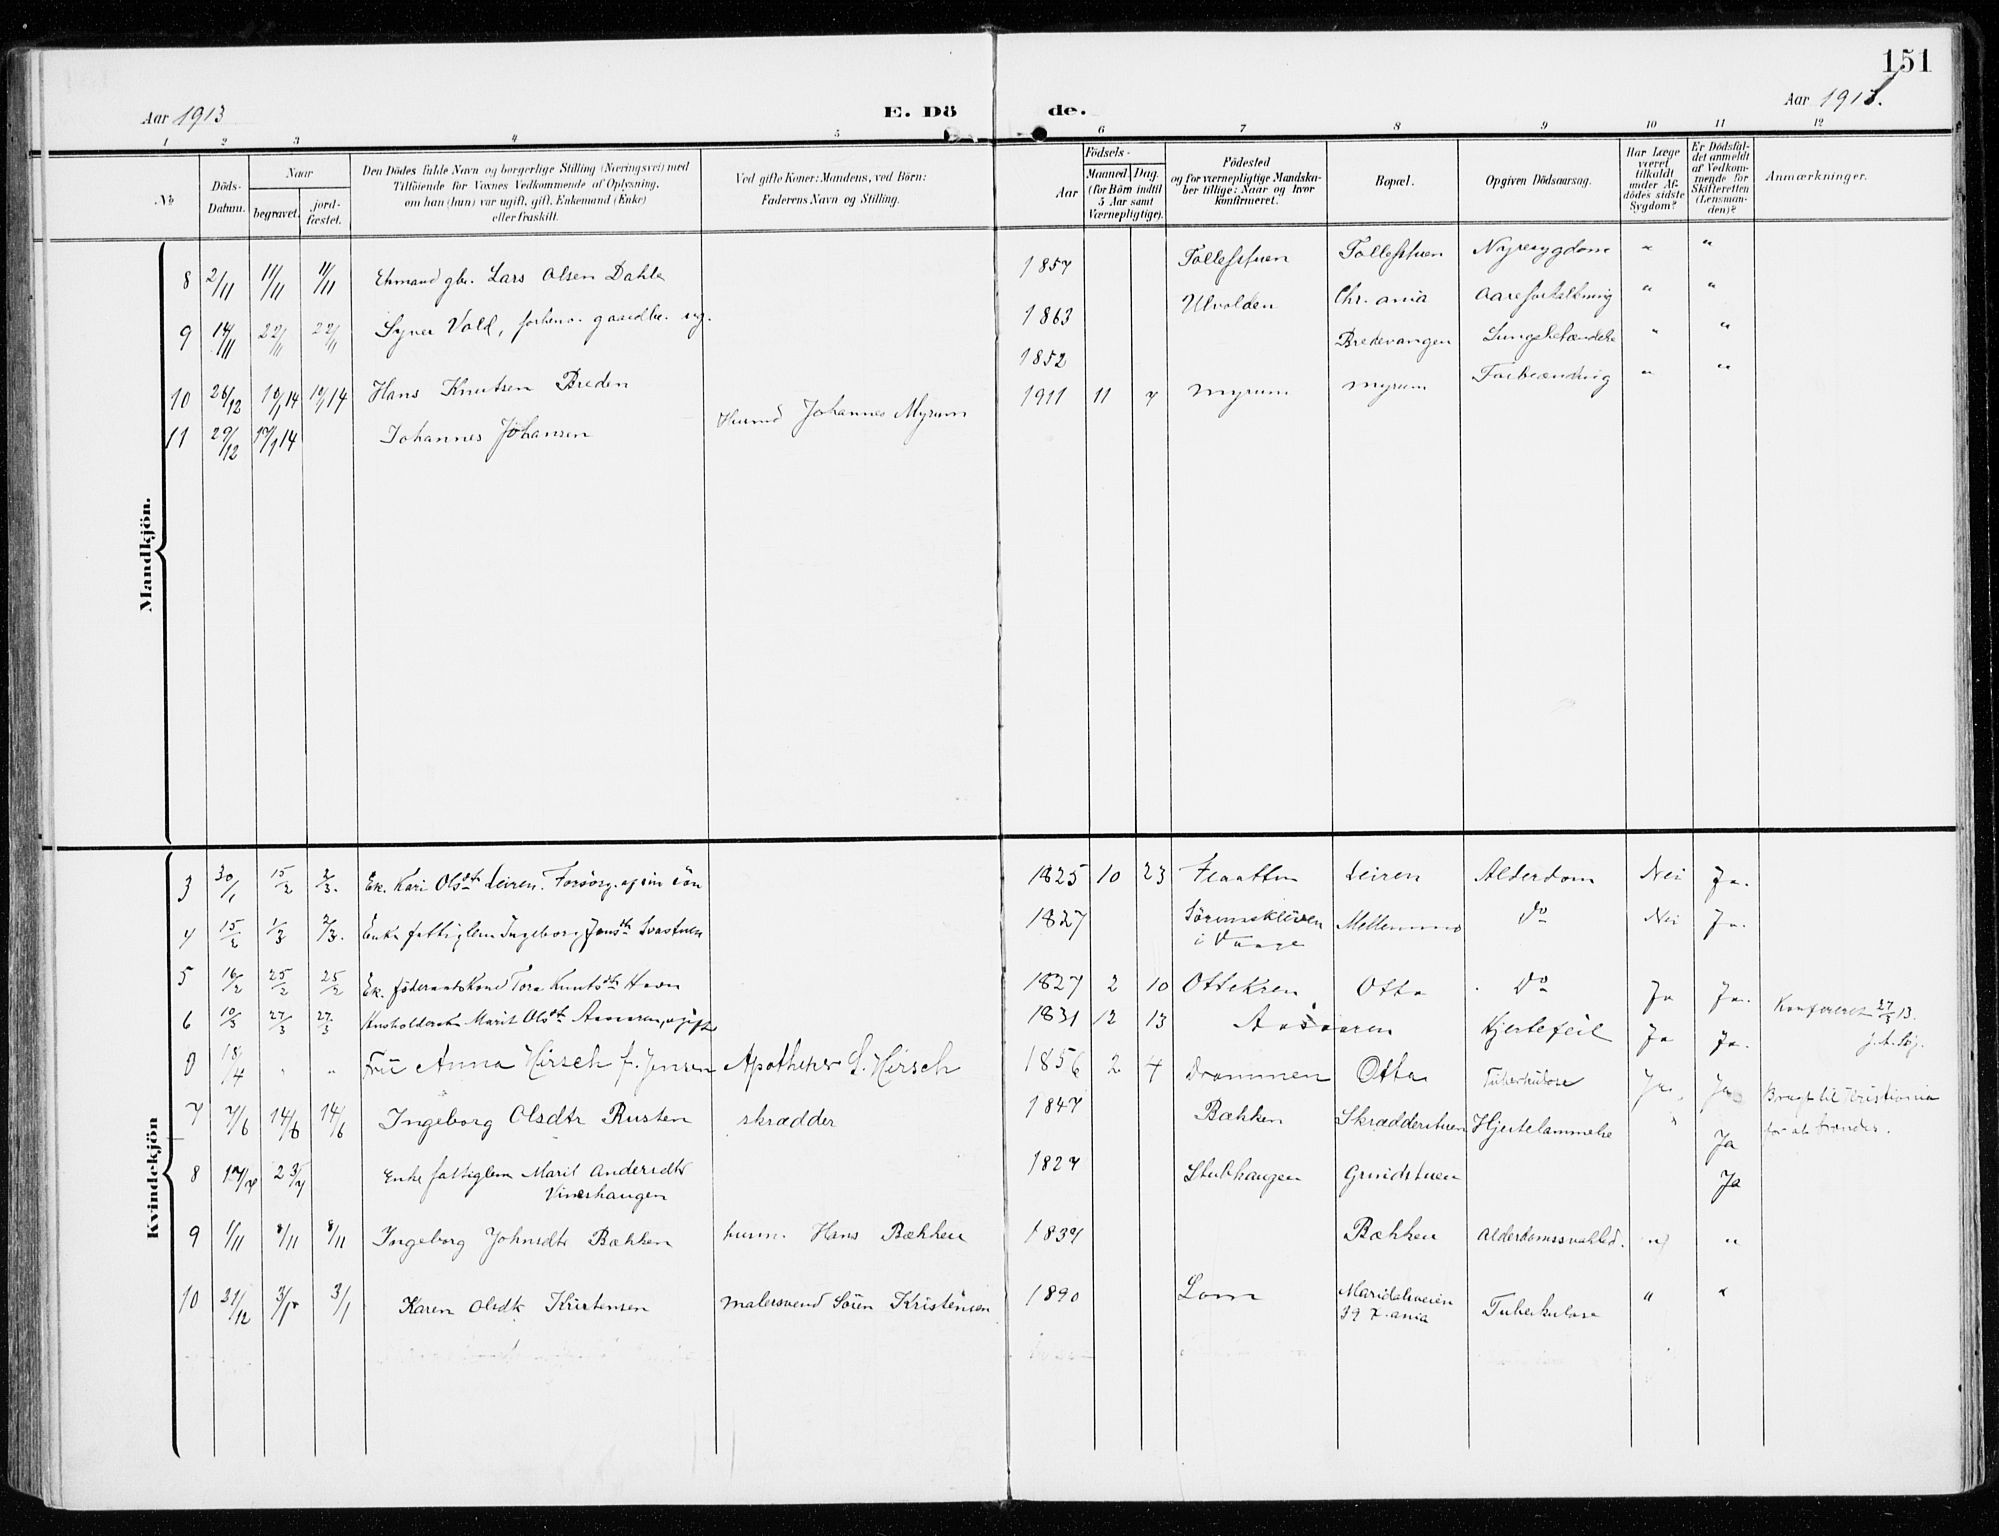 151
Aar 1913 E. Dö de. Aar 1913.
1 2 3 4 5 6 7 8 9 10 11 12
No
Döds-Datum.
Naar
begravet.
jord-fæstet.
Den Dödes fulde Navn og borgerlige Stilling (Næringsvei) med
Tilföiende for Voxnes Vedkommende af Oplysning,
om han (hun) var ugift, gift, Enkemand (Enke)
eller fraskilt.
Ved gifte Koner: Mandens, ved Börn:
Faderens Navn og Stilling.
Födsels-
Aar
Maaned. Dag.
(for Börn indtil
5 Aar samt
Værnepligtige).
Födested
og for værnepligtige Mandska-
ber tillige: Naar og hvor
konfirmeret.
Bopæl.
Opgiven Dödsaarsag.
Har Læge
været
tilkaldt
under Af-
dödes sidste
Sygdom?
Er Dödsfal-
det anmeldt
af Vedkom-
mende for
Skifteretten
(Lensman-
den)?
Anmærkninger.
Mandkjön.
8 2/11 11/11 11/11 Ekmand gbr. Lars Olsen Dahle 1857 Tollefstuen Tollefstuen Nyresygdom " "
9 14/11 22/11 22/11 Syver Vold, forhenv. gaardbr. ug. 1863 Ulvolden Chr.ania Aareforkalkning " "
10 26/12 10/1 14 10/1 14 Hans Knutsen Breden 1852 Bredevangen Lungebetændelse " "
11 29/12 17/1 14 Johannes Johansen Husmd Johannes Myrum 1911 11 7 Myrum Myrum Forbrænding " "
Kvindekjön
3 30/1 15/2 2/3. Ek. Kari Olsdtr Leiren. Forsörg. af sin sön 1825 10 23 Flaatten Leiren Alderdom Nei Ja.
4 15/2 1/3 2/3. Enke fattiglem Ingeborg Jonsdtr Svastuen 1827 i Vaage Mellemmo Do Nei Ja.
5 16/2 25/2 25/2 Ek. föderaadskone Tora Knutsdtr Haavn 1827 2 10 Ottekren Otta Do Ja Ja.
6 10/3 27/3 27/3 Marit Olsdtr Aasaaren, ugift 1831 12 13 Aasaaren Hjertefeil Ja Ja. Konfereret 27/3 13.
0 18/4 " " Fru Anna Hirsch f. Jensen Apotheker S. Hirsch 1856 2 4 Drammen Otta Tuberkulose Ja. Ja Bragt til Kristiania
for at brændes.
7 7/6 14/6 14/6 Ingeborg Olsdtr Rusten skrædder 1847 Bækken Skrædderstuen Hjertelammelse " Ja
8 17/7 23/7 Enke fattiglem Marit Andersdtr
Vineshaugen 1827 Stubhaugen Grindstuen Ja
9 1/11 8/11 8/11 Ingeborg Johnsdtr Bækken husm. Hans Bækken 1837 Bækken Alderdomssvakhed. " "
10 31/12 3/1 3/1 Karen Olsdtr Kristensen malersvend Sören Kristensen 1890 Lom Maridalsveien
39 Kr.ania Tuberkulose " "